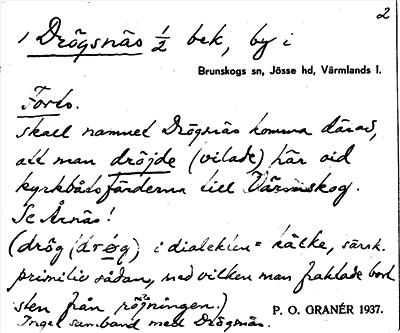 2
1 Drögsnäs 1/2 bek, by i
Brunskogs sn, Jösse hd, Värmlands l.
Forts.
skall namnet Drögsnäs komma därav,
att man dröjde (vilade) här vid
kyrkbåtsfärderna till Värmskog.
Se Årnäs!
(drög (drøg) i dialekten = kälke, särsk.
primitiv sådan, med vilken man fraktade bort
sten från röjningen.)
P. O. GRANÉR 1937.
Inget samband med Drögsnäs.